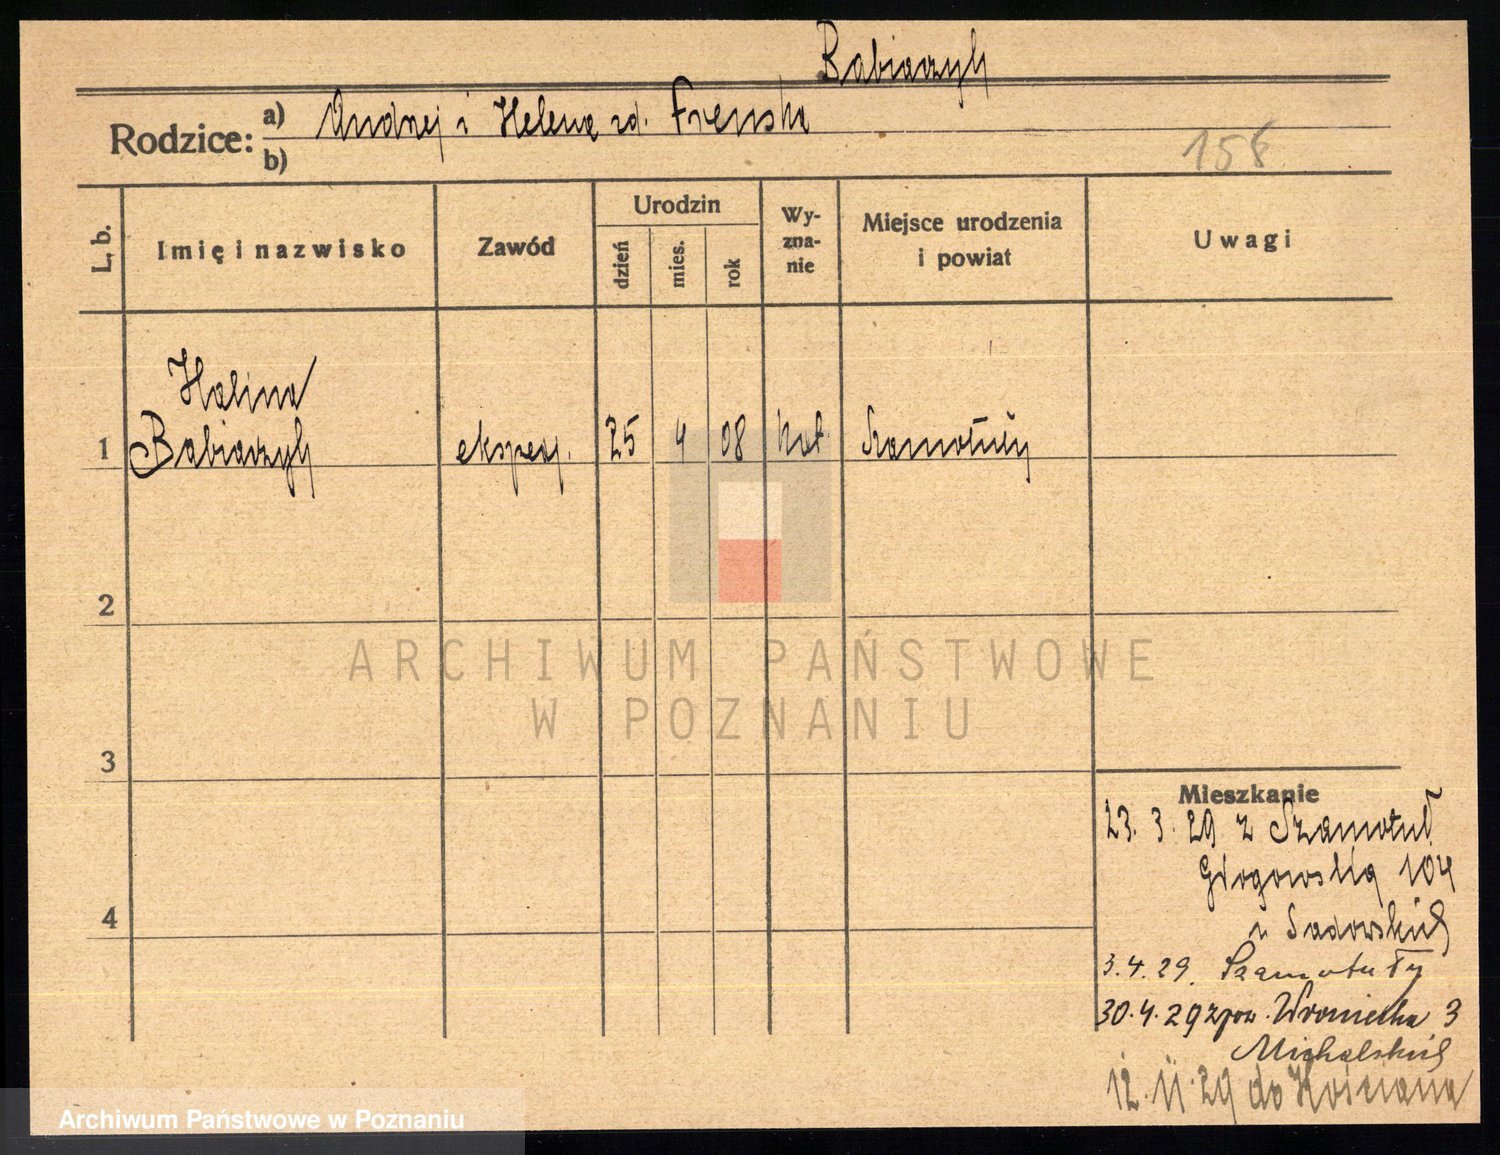 Babiarzyk
Rodzice: a) Andrzej i Helena zd. Frenska
b)
158
L. b.
Imię i nazwisko
Zawód
Urodzin
dzień
mies.
rok
Wy-
zna-
nie
Miejsce urodzenia
i powiat
Uwagi
Halina
1 Babiarzyk ekspedj. 25 4 08 kat Szamotuły
2
3
4
ARCHIWUM PAŃSTWOWE
W POZNANIU
Mieszkanie
23. 3. 29 z Szamotuł
Głogowska 104
u Sadowskich
3.4.29. Szamotuły
30.4.29 zpow. Wroniecka 3
Michalskich
12. 11. 29 do Kościana
Archiwum Państwowe w Poznaniu